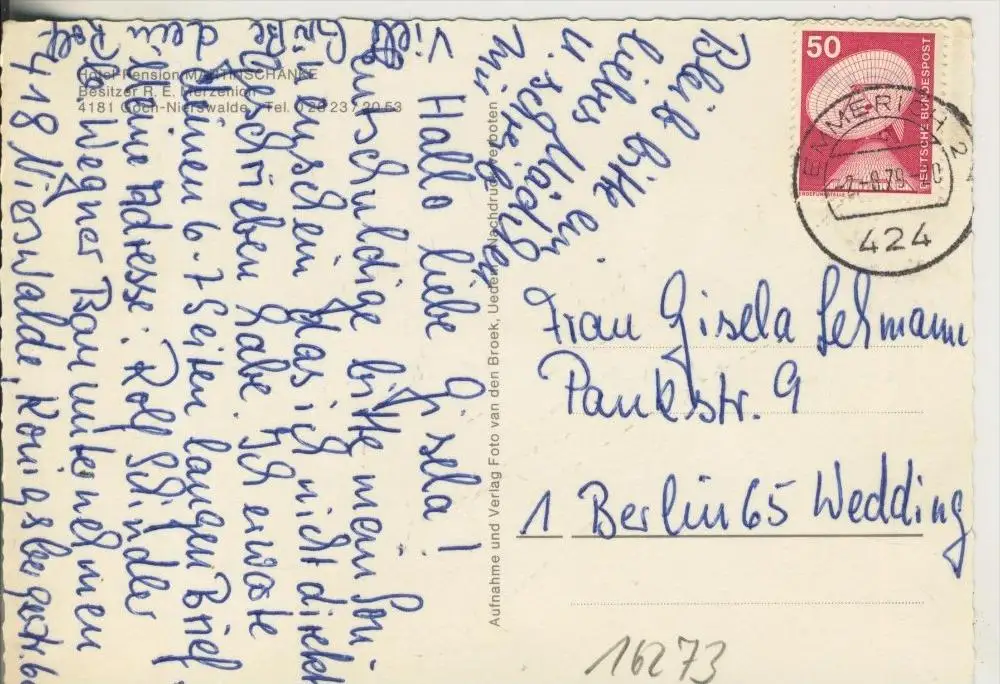 Hotel-Pension MARTINSCHÄNKE
Besitzer R. E. Herzenion
4181 Goch-Nierswalde · Tel. 0 28 23 / 20 53
Hallo liebe Gisela!
Entschuldige bitte mein
das ich nicht direkt
geschrieben habe. Ich erwarte
deinen 6-7 Seiten langen Brief
Meine Adresse: Rolf Schindler
Wegner Bauunternehmen
418 Nierswalde, Königsbergstr.
Viele
Grüße
dein Rolf
Bleib bitte ein
liebes
u. schreib
mir
Aufnahme und Verlag Foto van den Broek, Uedem · Nachdruck verboten
50
DEUTSCHE BUNDESPOST
EMMERICH 2
-2.-8.79
424
Frau Gisela Lehmann
Pankstr. 9
1 Berlin 65 Wedding
16273